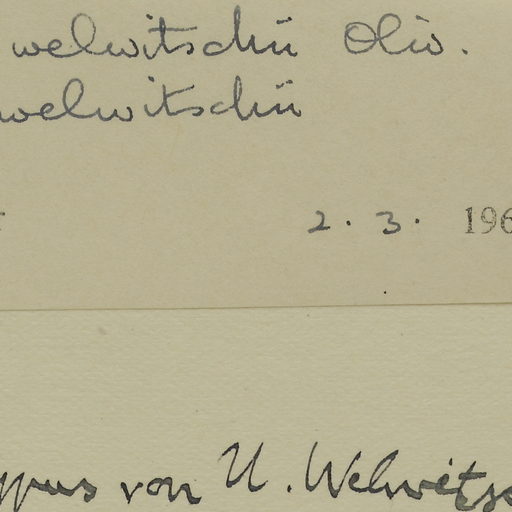 welwitschii Oliv.
welwitschii
2. 3. 196
von U. Welwits